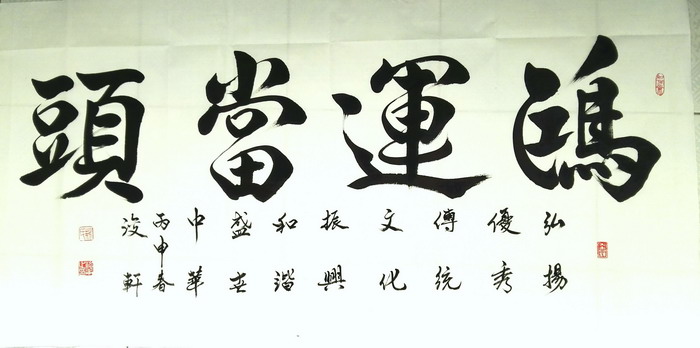 鴻運當頭
弘揚
優秀
傳統
文化
振興
和諧
盛世
中華
丙申春
浚軒